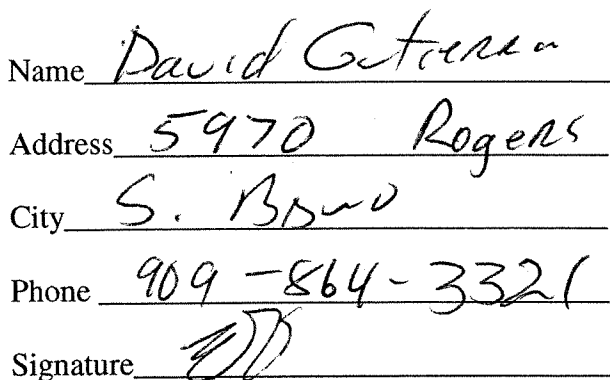 Name David Gutierrez
Address 5970 Rogers
City S. BDNO
Phone 909-864-3321
Signature